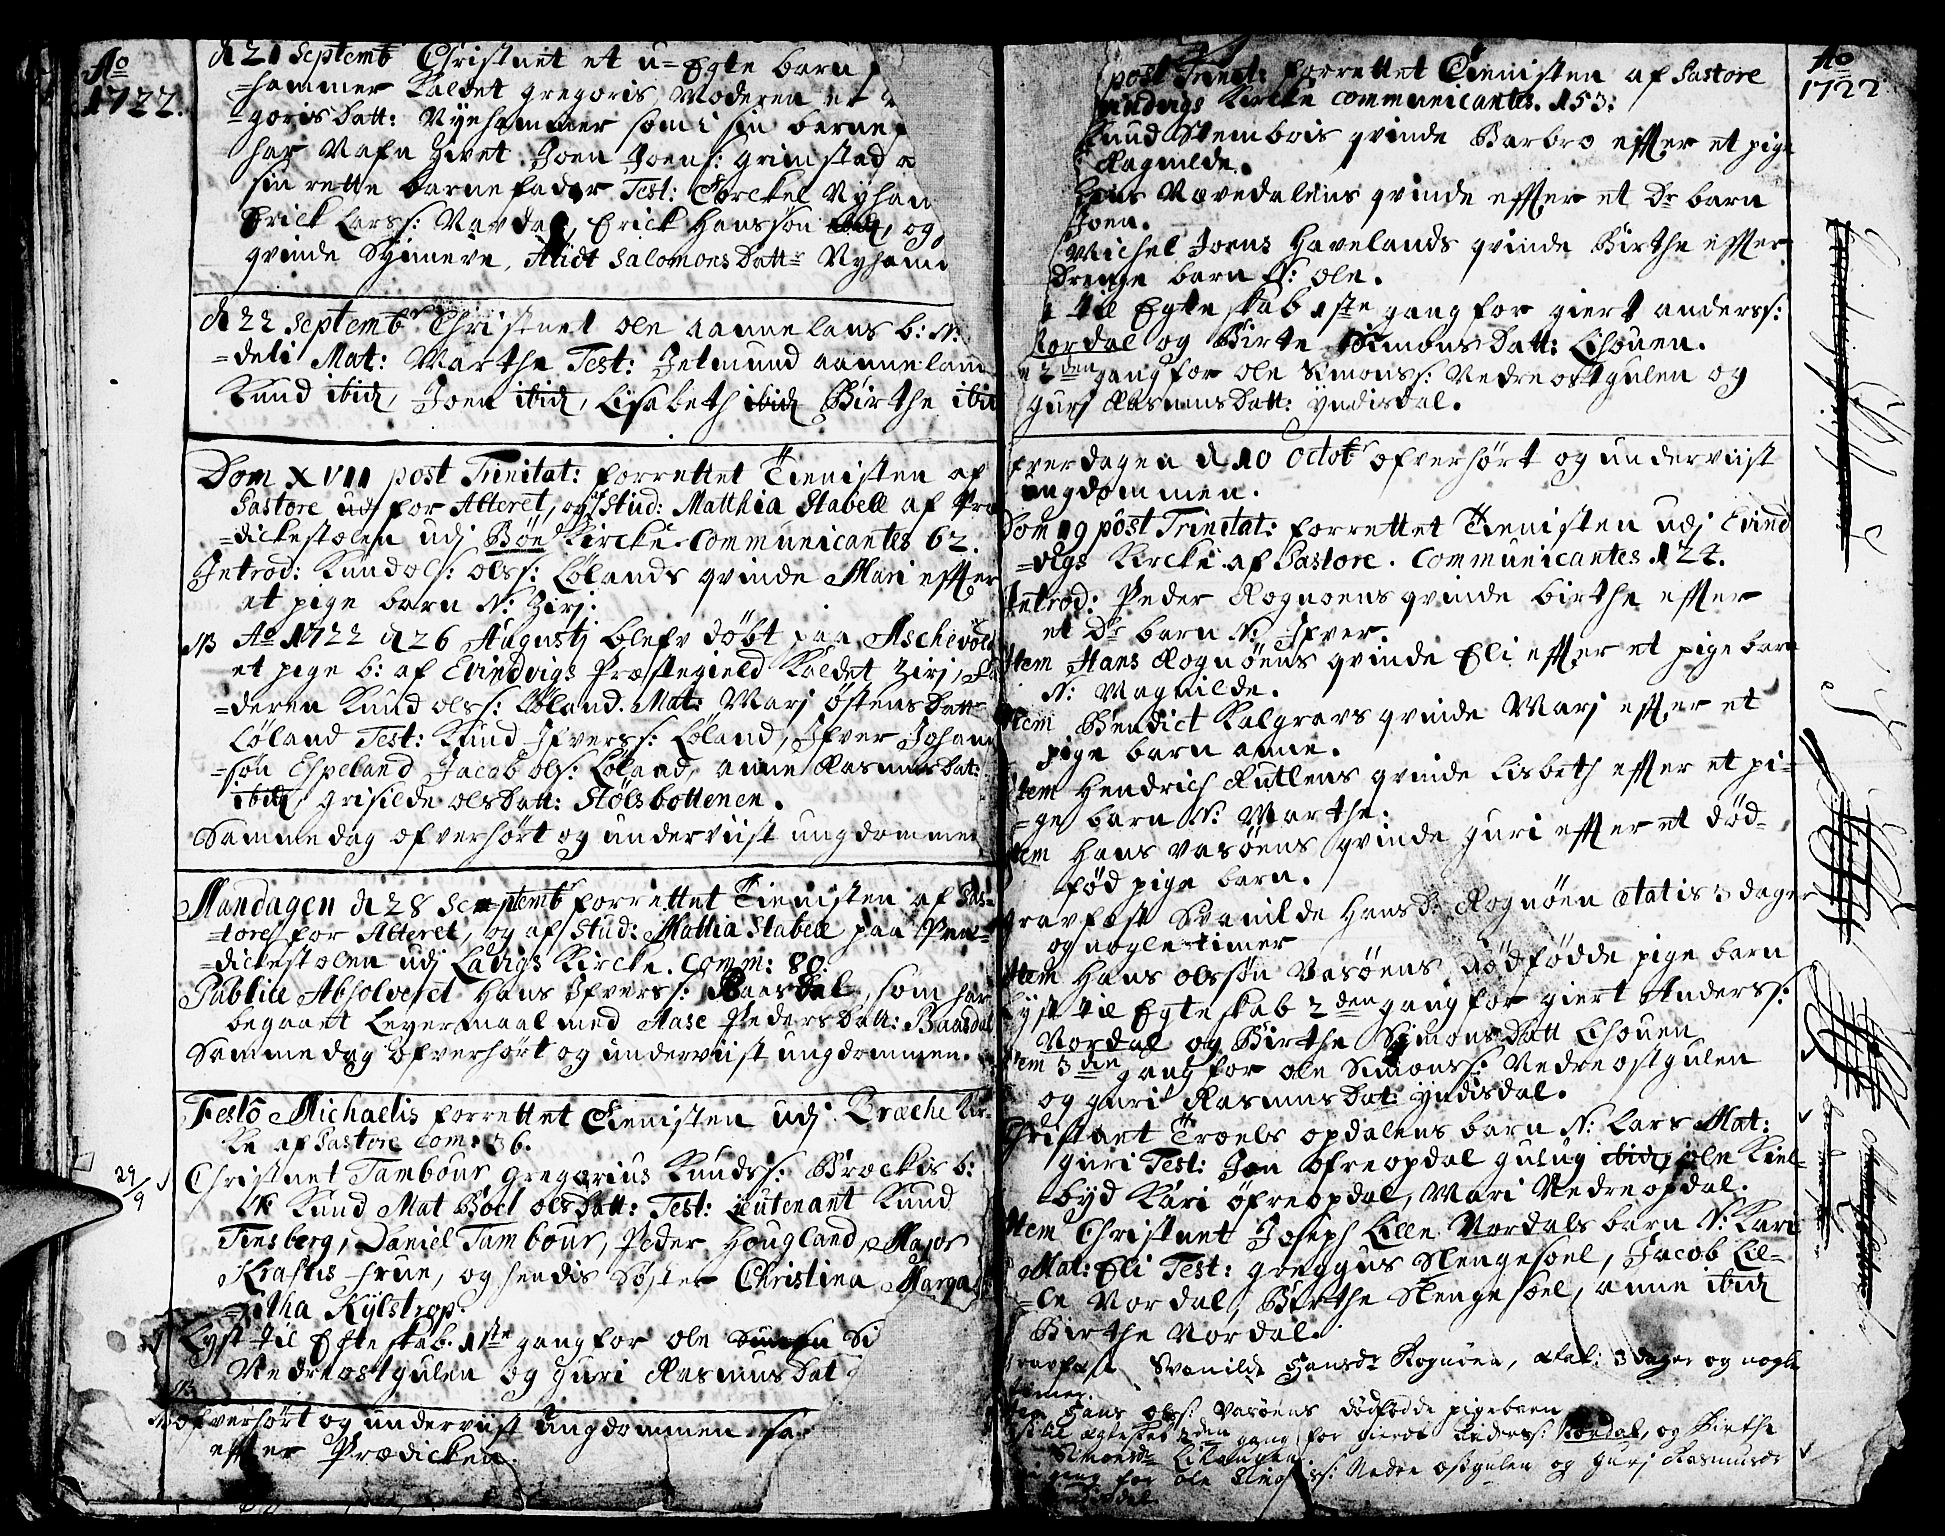 Ao
1722.
d 21 Septemb Christnet et u=Egte barn
=hammer Kaldet gregoris, Moderen er
=goris Datt: Nyehammer som i sin barne
har Nafn givet Joen Joens: Grimstad
sin rette barnefader Test: Torckel Nyham
Erick Larss: Navdal, Erick Hansson ibid, og
qvinde Synneve, Allict Salomons Dattr Nyham
d 22 Septembr Christnet ole aannelans b: N:
=deli Mat: Marthe Test: Jetmund aanneland
Knud ibid, Joen ibid, Lisabeth ibid Birthe ibid
Dom XVII post Trinitat: forrettet Tienisten af
Pastore udj for Alteret, og Stud: Matthia Stabell af Præ
=dickestolen udj Böe Kircke Communicantes 62.
Introd: Knud ols: olss: Lölands qvinde Mari effter
et pige barn N: Zirj:
NB Ao 1722 d 26 Augustj blefv döbt paa Aschevold
et pige b: af Evindvigs Præstegield Kaldet Zirj, Fa
=deren Knud olss: Löland. Mat: Marj östensDattr
Löland Test: Knud Ifverss: Löland, Ifver Johan
=son Espeland Jacob ols: Löland, anne RasmusDat:
ibid, grisilde olsDatt: Stölsbottenen.
Samme dag ofverhört og underviist ungdommen
Mandagen d 28 Septemb forrettet Tienisten af Pas=
=tore for Alteret, og af Stud: Mattia Stabell paa Præ=
=dickestolen udj Lavigs Kircke. Comm: 80.
Publice Absolveret Hans Ifverss: Baasdal, som har
begaaet Leyermaal med Aase PedersDatt: Baasdal
Samme dag ofverhört og underviist ungdommen.
Festo Michaelis forrettet Tienisten udj Bræche Kir=
ke af Pastore Com: 36.
29/9 Christnet Tambour Gregorius Knudss: Brockis b:
N: Knud Mat Boel olsDatt: Test: Leutenant Knud
Finsberg, Daniel Tambour, Peder Hougland, Major
Krafts frue, og hendis Söster Christina Marga=
=retha Kylstrop.
Lyst til Egteskab. 1ste gang for ole Si
Nedreostgulen og Guri RasmusDat
NB ofverhört og underviist Ungdommen sa
effter Prædicken.
post Trinit: forrettet Tienisten af Pastore
Evindvigs Kircke Communicantes. 153:
Knud Stembois qvinde Barbro effter et pige
Ragnilde.
Hans Nævedalens qvinde effter et Dr barn
Joen.
Michel Joens Havelands qvinde Birthe effter
Drenge barn N: Ole.
til Egteskab 1ste gang for giert anderss:
Nordal og Birte SimonsDatt: Lihouen.
2den gang for ole Simonss: Nedreostgulen og
Gurj RasmusDatt: yndisdal.
fverdagen d 10 Octobr ofverhört og underviist
ungdommen.
Dom 19 post Trinitat: forrettet Tienisten udj Evind
=vigs Kircke af Pastore. Communicantes. 122.
Introd: Peder Rognoens qvinde birthe effter
et Dr barn N: Ifver.
Item Hans Rognöens qvinde Eli effter et pigebarn
N: Magnilde.
Item Bendict Kalgravs qvinde Marj effter et
pige barn anne.
Item Hendrich Rutlens qvinde Lisbeth effter et pi=
=ge barn N: Marthe.
Item Hans Vasöens qvinde guri effter et död=
föd pige barn.
Gravfæst Svanilde HansDr Rognöen ætatis 3 dager
og nogle timer
Item Hans olssön Vasöens dödfödde pige barn
Lyst til Egteskab 2den gang for giert Anderss:
Nordal og Birthe SimonsDatt Lihouen
Item 3die gang for ole Simonss: Nedreostgulen
og guri RasmusDat: yndisdal.
Christnet Troels opdalens barn N: Lars Mat:
guri Test: Jon öfreopdal gulug ibid, ole Kiel=
byd Kari öfreopdal, Mari Nedreopdal.
Item Christnet Joseph Lille Nordals barn N: Kari
Mat: Eli Test: greggus Slengesoel, Jacob Lil=
=le Nordal, Birthe Slengesoel, anne ibid
Birthe Nordal.
Gravfæst Svanilde Hansdr Rognöen, ætat: 3 dager og nogle
timer.
Item Hans olss: Vasöens dödfödde pigebarn
til egteskab 2den gang for Gierdt Anderss: Nordal, og Birthe
Simonsdr Lihougen
gang for ole Simonss: Nedre ostgulen og Gurj Rasmusdr
Yndisdal
Ao
1722